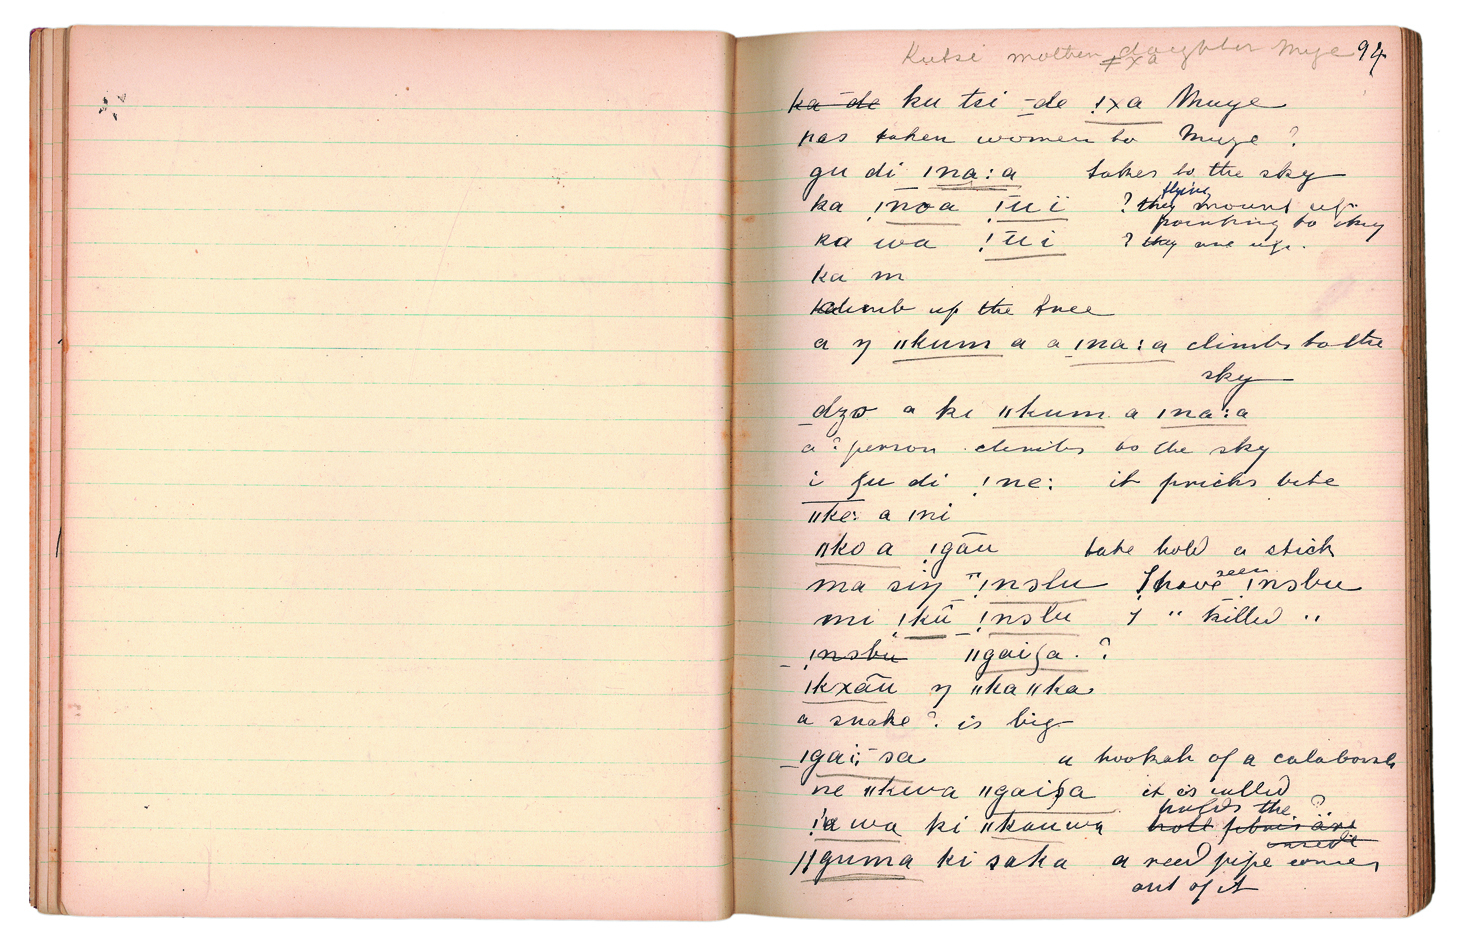 Kutsi mother daughter Muye 94
ǂxa
ka de ku tsi -de !xa Muye
has taken women to Muye ?
gu di ǀna:a takes to the sky
flying
ka !noa !ūi ? they mount up
pointing to sky
ka wa !ūi ? they are up.
ka m
climb up the tree
a ŋ ǁkum a a ǀna:a climbs to the
sky
dzo a ki ǁkum a ǀna:a
a ? person climbs to the sky
i gu di !ne: it pricks bite
ǁke: a ǀni
ǁko a !gāu take hold a stick
seen
ma siŋ !nsbu I have !nsbu
mi !kū !nsbu I " killed "
!nsbu ǁgaiʃa . ?
ǀkxāu ŋ ǁkaǁka
a snake ? is big
ǀgai:sa a hookah of a calabash
ne ǁkwa ǁgaiʃa it is called
holds the ?
wa ki ǁkauwa hole are
inside
ǁguma ki saka a reed pipe comes
out of it